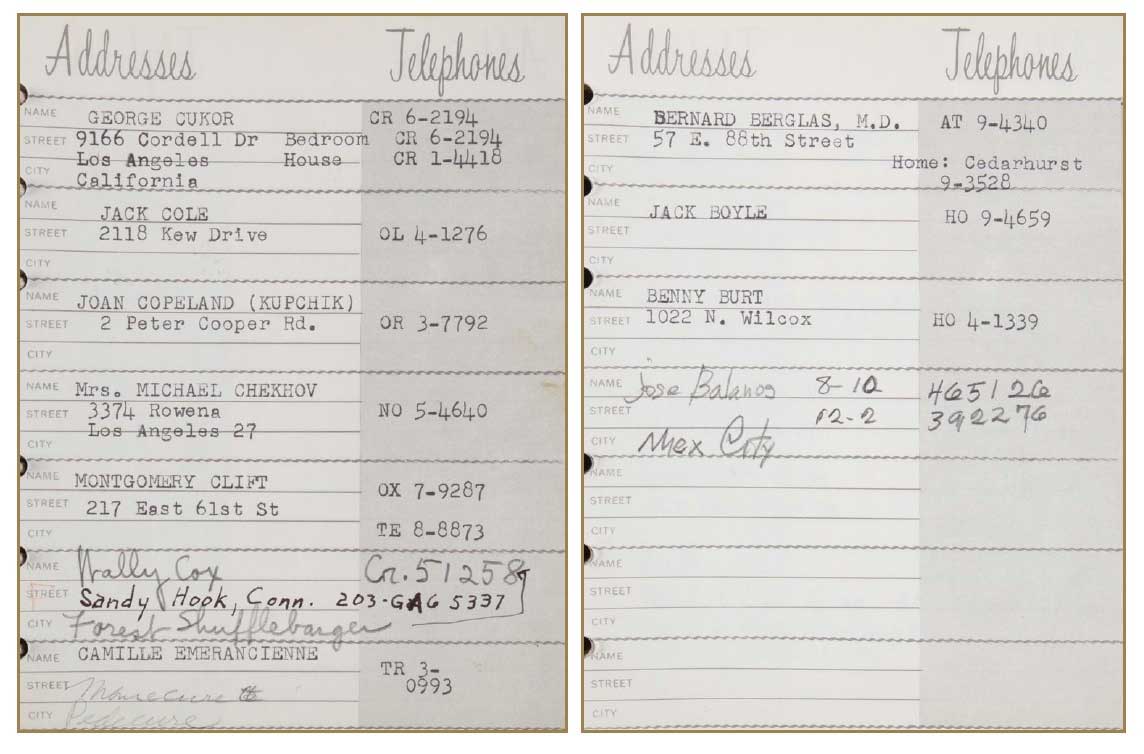 Addresses Telephones
NAME GEORGE CUKOR CR 6-2194
STREET 9166 Cordell Dr Bedroom CR 6-2194
Los Angeles House CR 1-4418
CITY California
NAME JACK COLE
STREET 2118 Kew Drive OL 4-1276
CITY
NAME JOAN COPELAND (KUPCHIK)
STREET 2 Peter Cooper Rd. OR 3-7792
CITY
NAME Mrs. MICHAEL CHEKHOV
STREET 3374 Rowena NO 5-4640
Los Angeles 27
CITY
NAME MONTGOMERY CLIFT OX 7-9287
STREET 217 East 61st St
CITY TE 8-8873
NAME Wally Cox Cr. 51258
STREET Sandy Hook, Conn. 203-GA6 5337
CITY Forest Shufflebarger
NAME CAMILLE EMERANCIENNE TR 3-
0993
STREET Manecure
CITY Pedecure
Addresses Telephones
NAME BERNARD BERGLAS, M.D. AT 9-4340
STREET 57 E. 88th Street
Home: Cedarhurst
CITY 9-3528
NAME JACK BOYLE HO 9-4659
STREET
CITY
NAME BENNY BURT
STREET 1022 N. Wilcox HO 4-1339
CITY
NAME Jose Balanos 8-10 465126
STREET 12-2 392276
CITY Mex City
NAME
STREET
CITY
NAME
STREET
CITY
NAME
STREET
CITY